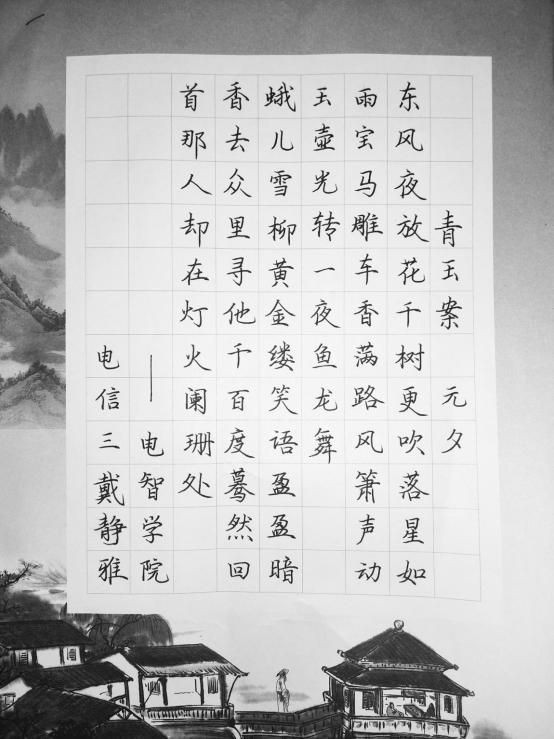 青玉案 元夕
东风夜放花千树更吹落星如
雨宝马雕车香满路风箫声动
玉壶光转一夜鱼龙舞
蛾儿雪柳黄金缕笑语盈盈暗
香去众里寻他千百度蓦然回
首那人却在灯火阑珊处
——电智学院
电信三戴静雅